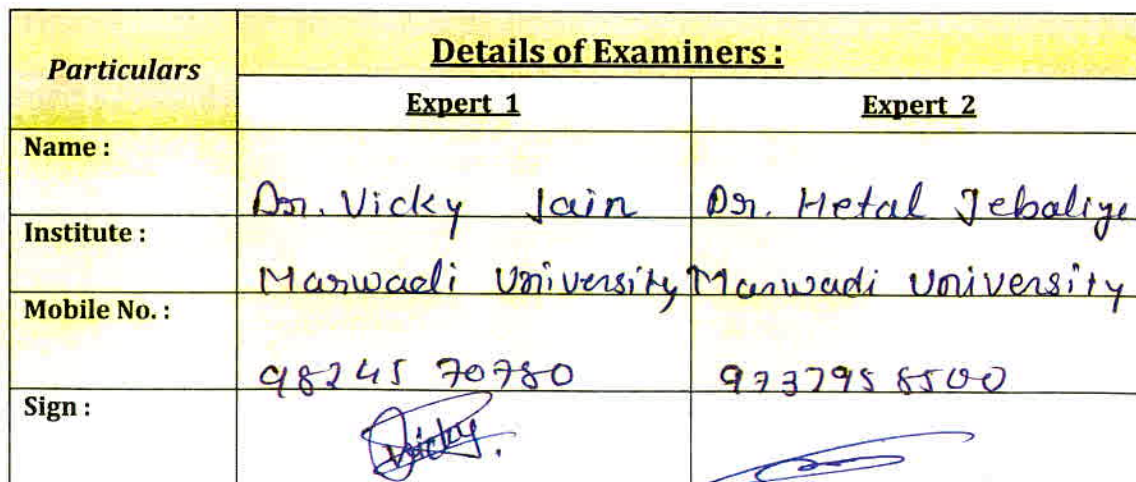 Particulars
Details of Examiners :
Expert 1
Expert 2
Name :
Dr. Vicky Jain
Dr. Hetal Jebaliya
Institute :
Marwadi University
Marwadi University
Mobile No. :
98245 70780
Sign :
Vicky.